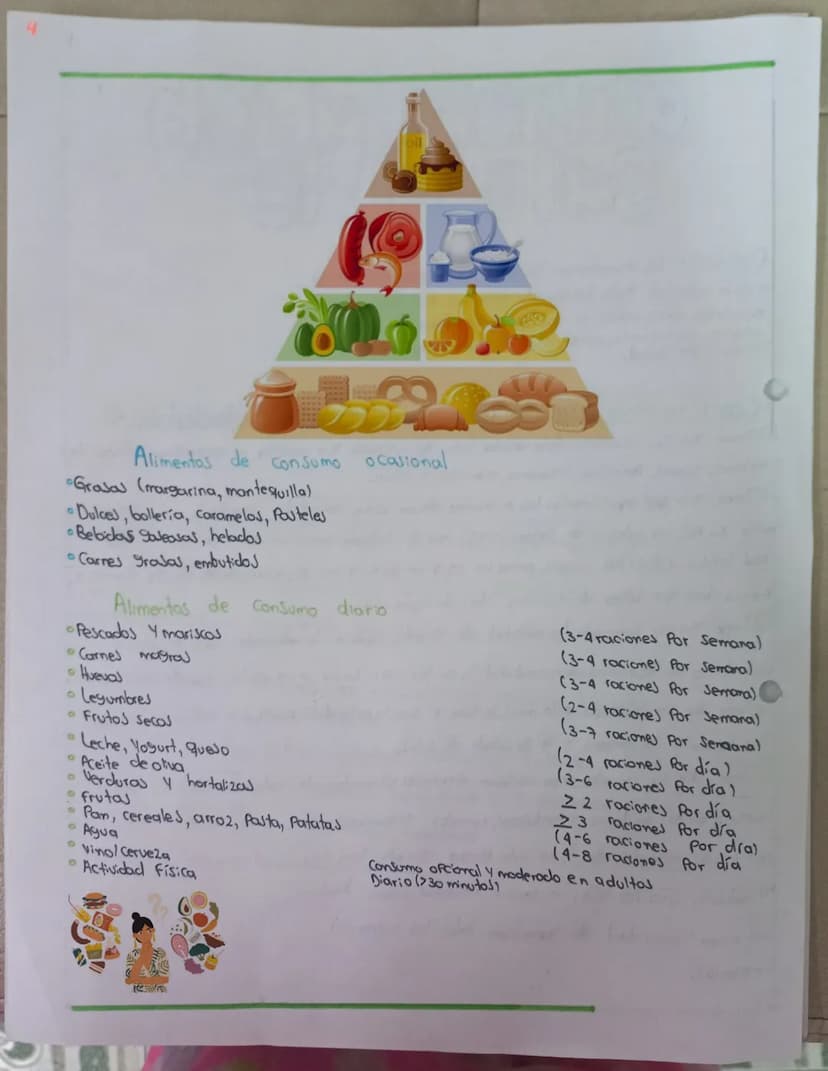 4
oil
Alimentos de consumo ocasional
Grasas (margarina, mantequilla)
Dulces, bollería, caramelos, Pasteles
Bebidas gaseosas, helados
Carnes grasas, embutidos
Alimentos de consumo diario
Pescados y mariscos (3-4 raciones Por semana)
Carnes magras (3-4 raciones Por semana)
Huevos (3-4 raciones Por semana)
Legumbres (2-4 raciones Por semana)
Frutos secos (3-7 raciones Por semana)
Leche, Yogurt, queso (2-4 raciones Por día)
Aceite de oliva (3-6 raciones Por día)
Verduras y hortalizas ≥ 2 raciones Por día
Frutas ≥ 3 raciones Por día
Pan, cereales, arroz, Pasta, Patatas (4-6 raciones Por día)
Agua (4-8 raciones Por día
Vino/cerveza Consumo opcional y moderado en adultos
Actividad Física Diario (>30 minutos)